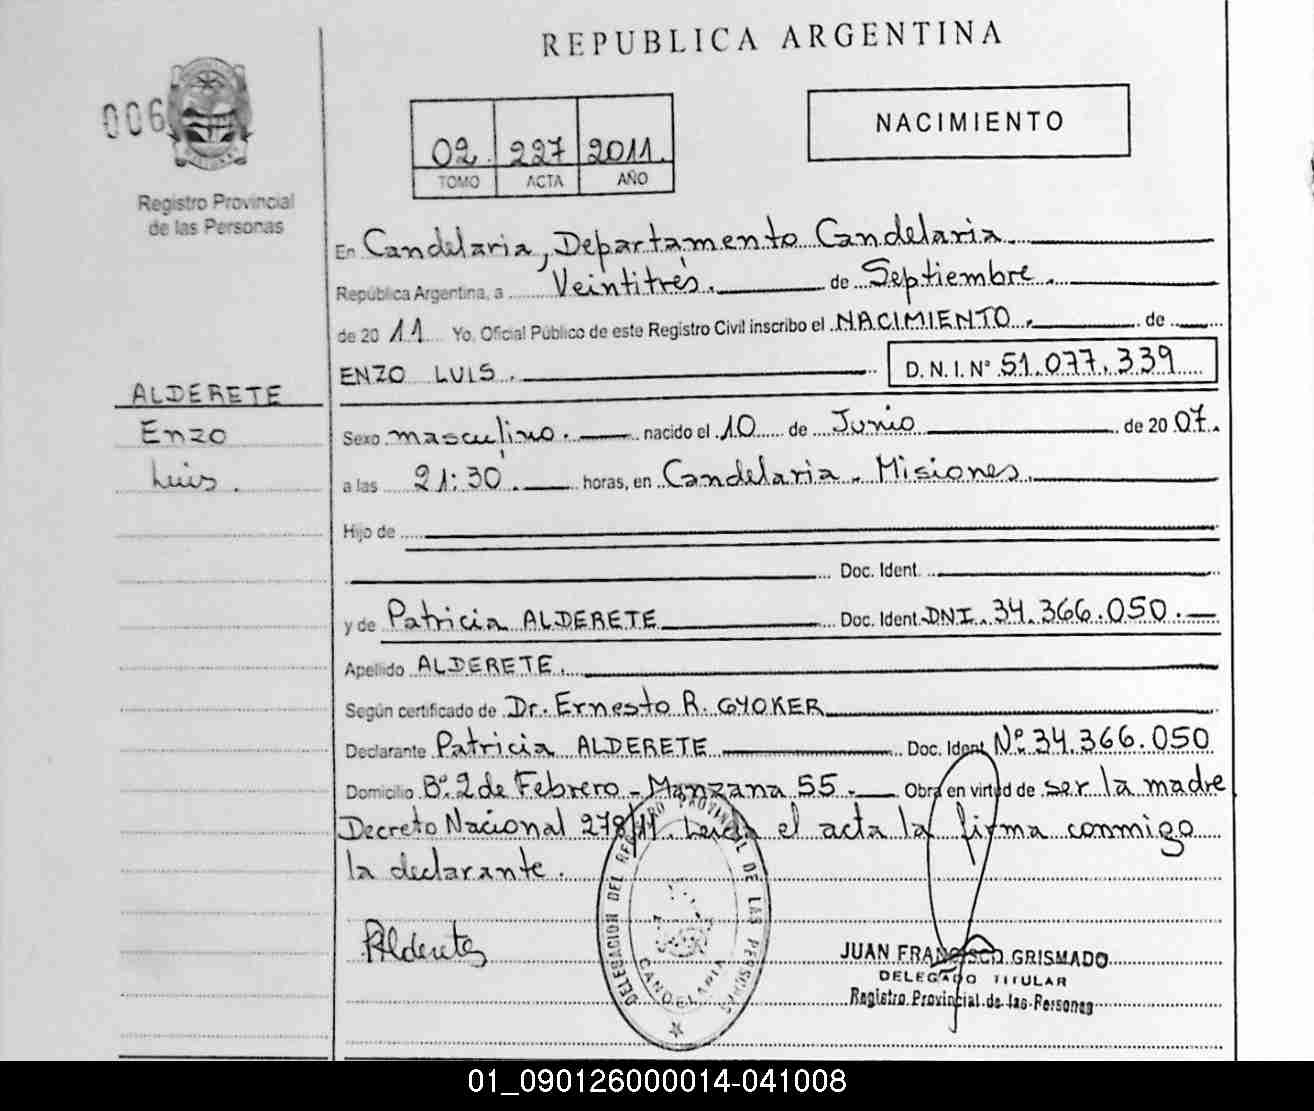 REPUBLICA ARGENTINA
006
NACIMIENTO
02. 227 2011.
TOMO ACTA AÑO
Registro Provincial
de las Personas
En Candelaria, Departamento Candelaria
República Argentina, a Veintitrés. de Septiembre.
de 2011 Yo, Oficial Público de este Registro Civil inscribo el NACIMIENTO. de
ENZO LUIS. D.N.I. Nº 51.077.339
ALDERETE
Enzo
Luis.
Sexo masculino. nacido el 10 de Junio de 2007.
a las 21:30. horas, en Candelaria. Misiones.
Hijo de
Doc. Ident.
y de Patricia ALDERETE Doc. Ident. DNI. 34.366.050.
Apellido ALDERETE.
Según certificado de Dr. Ernesto R. GYOKER
Declarante Patricia ALDERETE Doc. Ident. Nº 34.366.050
Domicilio Bº 2 de Febrero - Manzana 55. Obra en virtud de ser la madre
Decreto Nacional 278/11. Leida el acta la firma conmigo
la declarante.
Alderete
DELEGACION DEL REGISTRO PROVINCIAL DE LAS PERSONAS
CANDELARIA
JUAN FRANCISCO GRISMADO
DELEGADO TITULAR
Registro Provincial de las Personas
01_090126000014-041008